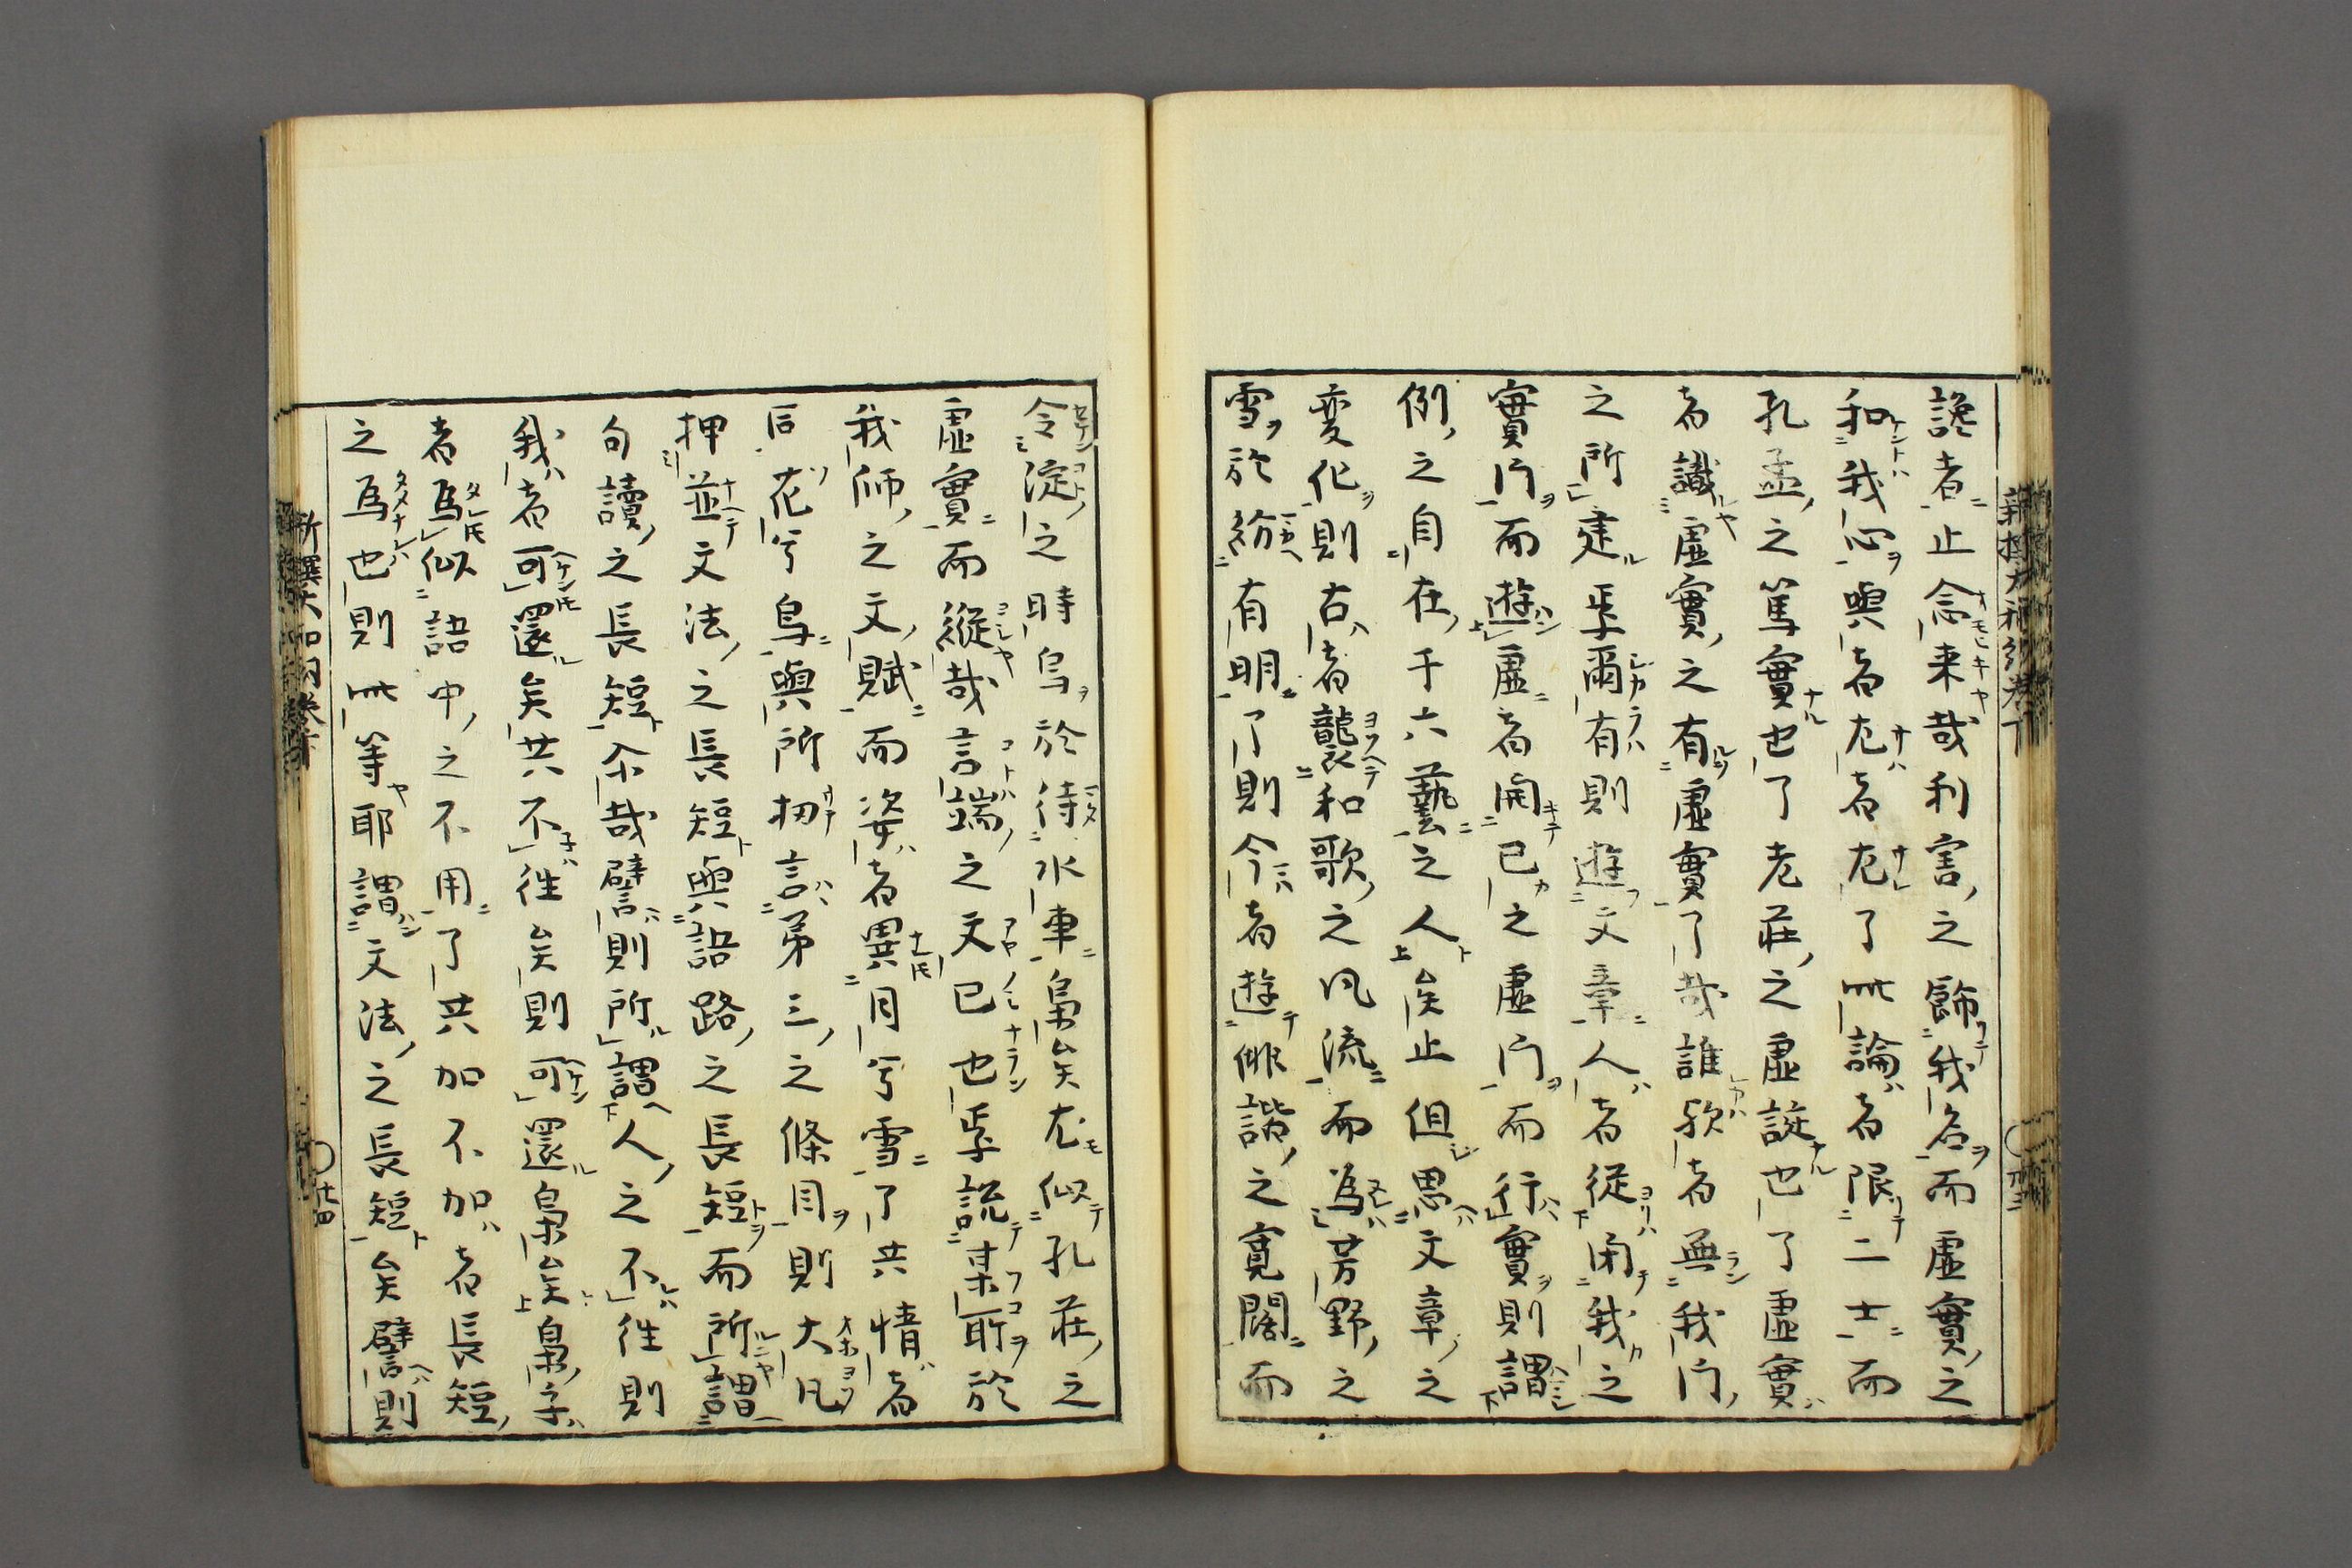 讒者止念来哉利害之餝我名而虚實之
和我心與者尤者尤了此論者限二士而
孔孟之篤實也了老荘之虚誕也了虚實
者識虚實之有虚實了哉誰欤者無我門
之所建焉爾有則遊文章人者従閑我之
實門而遊虚者開已之虚門而行實則謂
例之自在于六藝之人矣止但思文章之
変化則古者襲和歌之風流而為芳野之
雪於紛有明了則今者遊俳諧之寛闊而
令淀之時鳥於待水車梟矣尤似孔荘之
虚實而縦哉言端之文已也焉説某耶於
我師之文賦而姿者異月兮雪了共情者
后花兮鳥與所扨言第三之條目則大凡
押並文法之長短與語路之長短而所謂
句讀之長短余哉譬則所謂人之不徃則
我者可還矣共不徃矣則可還梟矣梟字
者為似語中之不用了共加不加者長短
之為也則此等耶謂文法之長短矣譬則
新撰大和詞巻下
十四